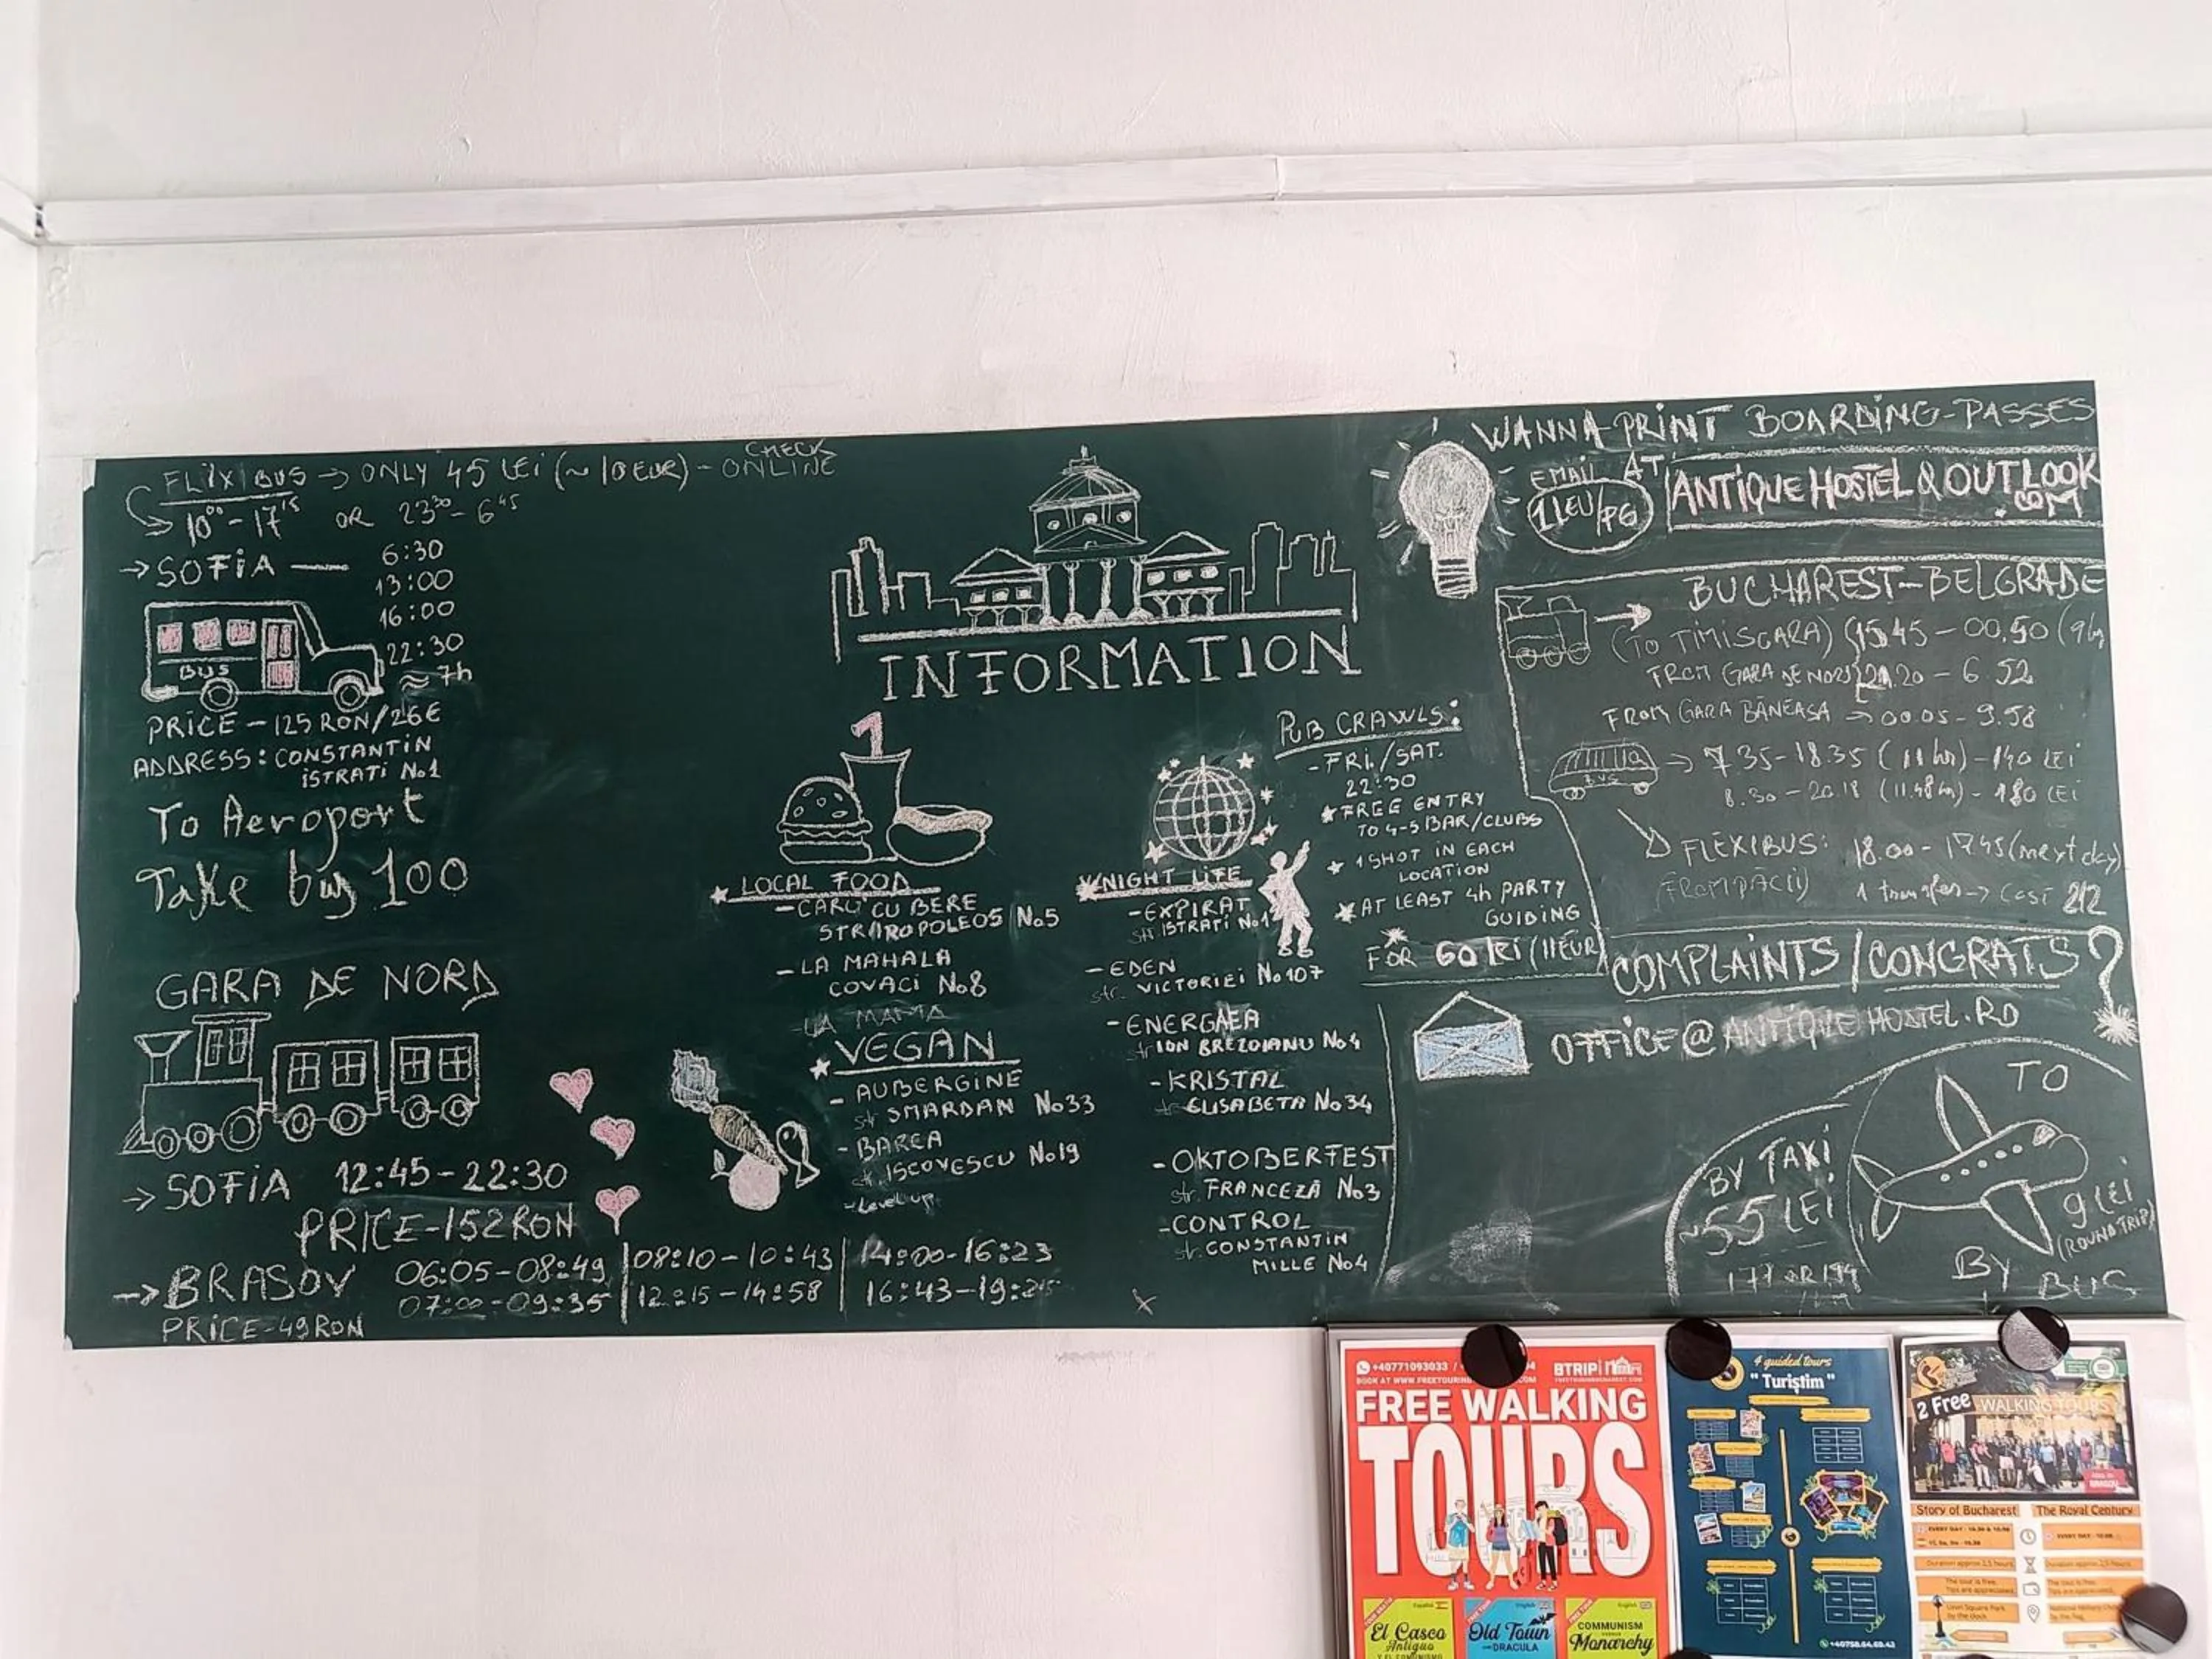 FLIXIBUS → ONLY 45 LEI (~10 EUR) - CHECK ONLINE
10⁰⁰ - 17¹⁵ OR 23³⁰ - 6⁴⁵
→ SOFIA — 6:30
13:00
16:00
22:30
≈ 7h
BUS
PRICE - 125 RON/26€
ADDRESS: CONSTANTIN
ISTRATI No1
To Aeroport
Take bus 100
GARA DE NORD
→ SOFIA 12:45 - 22:30
PRICE - 152 RON
→ BRASOV 06:05 - 08:49 | 08:10 - 10:43 | 14:00 - 16:23
07:00 - 09:35 | 12:15 - 14:58 | 16:43 - 19:25
PRICE - 49 RON
INFORMATION
1
LOCAL FOOD
- CARU' CU BERE
STRAROPOLEOS No5
- LA MAHALA
COVACI No8
- LA MAMA
VEGAN
- AUBERGINE
str SMARDAN No33
- BARCA
str. ISCOVESCU No19
- Level up
NIGHT LIFE
- EXPIRAT
str ISTRATI No1
- EDEN
str. VICTORIEI No107
- ENERGAEA
str ION BREZOIANU No4
- KRISTAL
str ELISABETA No34
- OKTOBERFEST
str. FRANCEZĂ No3
- CONTROL
str. CONSTANTIN
MILLE No4
PUB CRAWLS:
- FRI./SAT.
22:30
FREE ENTRY
TO 4-5 BAR/CLUBS
1 SHOT IN EACH
LOCATION
AT LEAST 4h PARTY
GUIDING
FOR 60 lei (11EUR)
WANNA PRINT BOARDING-PASSES
EMAIL AT
1 LEU/PG
ANTIQUEHOSTEL@OUTLOOK
.COM
BUCHAREST - BELGRADE
→ (TO TIMISOARA) 15.45 - 00.50 (9h
FROM GARA DE NORD 21.20 - 6 52
FROM GARA BĂNEASA → 00.05 - 9.58
BUS → 7.35 - 18.35 (11 hr) - 140 LEI
8.30 - 20.18 (11.48h) - 180 LEI
FLEXIBUS: 18.00 - 17 45 (next day)
(FROM PĂCII) 1 transfer → cost 212
COMPLAINTS/CONGRATS?
OFFICE@ANTIQUEHOSTEL.RO
TO
BY TAXI
~55 LEI
9 LEI
(ROUND TRIP)
BY BUS
+40771093033 /
BTRIP
FREE WALKING
TOURS
El Casco
Antiguo
Old Town
DRACULA
COMMUNISM
Monarchy
4 guided tours
"Turiștim"
+40758.64.69.42
2 Free WALKING TOURS
Story of Bucharest
The Royal Century